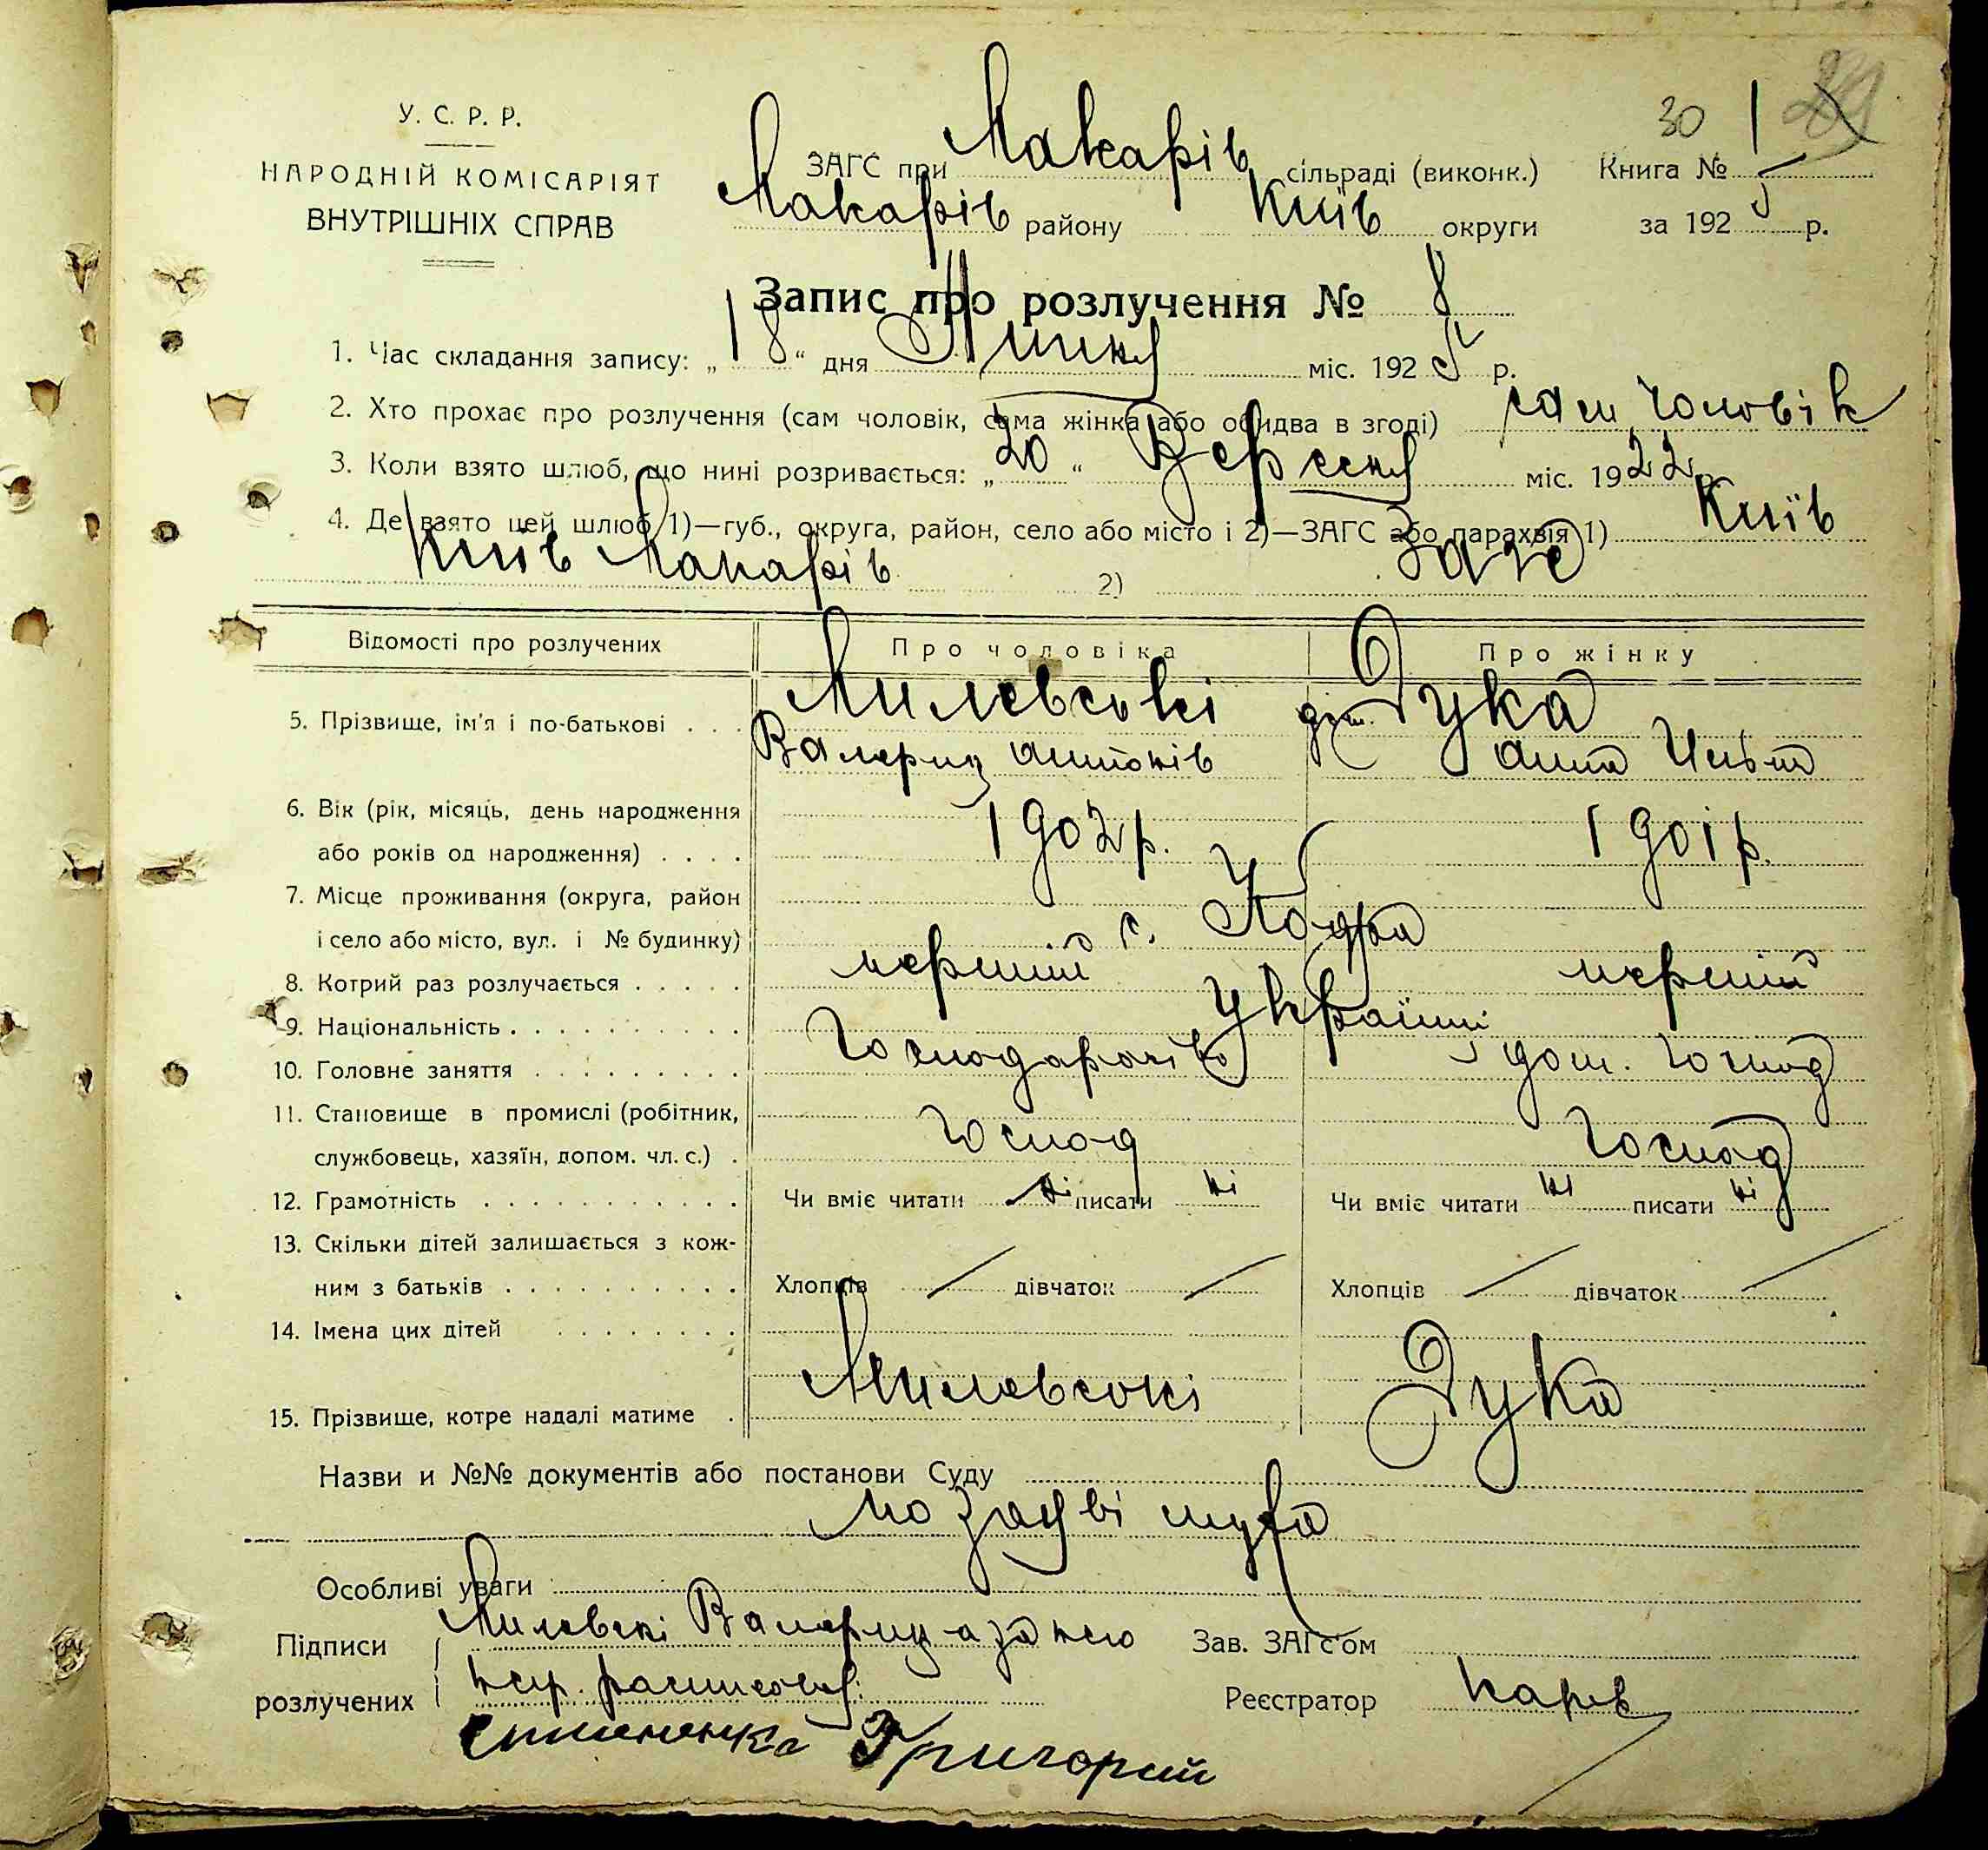 30
У. С. Р. Р.
НАРОДНІЙ КОМІСАРІЯТ
ВНУТРІШНІХ СПРАВ
ЗАГС при Макарів сільраді (виконк.) Книга № 1
Макарів району Київ округи за 1925 р.
Запис про розлучення № 8
1. Час складання запису: „18“ дня Липня міс. 1925 р.
2. Хто прохає про розлучення (сам чоловік, сама жінка або обидва в згоді) сам чоловік
3. Коли взято шлюб, що нині розривається: „20“ Вересня міс. 1922 р.
4. Де взято цей шлюб 1)—губ., округа, район, село або місто і 2)—ЗАГС або парахвія 1) Київ
Київ Макарів 2) Загс
Відомості про розлучених Про чоловіка Про жінку
5. Прізвище, ім'я і по-батькові . . . Милевські Дука
Валериц Антонів Анна
6. Вік (рік, місяць, день народження
або років од народження) . . . . 1902 р. 1901 р.
7. Місце проживання (округа, район
і село або місто, вул. і № будинку) с. Кодра
8. Котрий раз розлучається . . . . . перший перший
9. Національність . . . . . . . . . . Україн.
10. Головне заняття . . . . . . . . . Господарств дом. господ
11. Становище в промислі (робітник,
службовець, хазяїн, допом. чл. с.) . Господ Господ
12. Грамотність . . . . . . . . . . . Чи вміє читати ні писати ні Чи вміє читати ні писати ні
13. Скільки дітей залишається з кож-
ним з батьків . . . . . . . . . . Хлопців / дівчаток / Хлопців / дівчаток /
14. Імена цих дітей . . . . . . . .
15. Прізвище, котре надалі матиме . Милевські Дука
Назви и №№ документів або постанови Суду
по заяві мужа
Особливі уваги
Підписи Милевскі Валериц а за него Зав. ЗАГС'ом
розлучених негр. росписовся: Реєстратор
Григорий